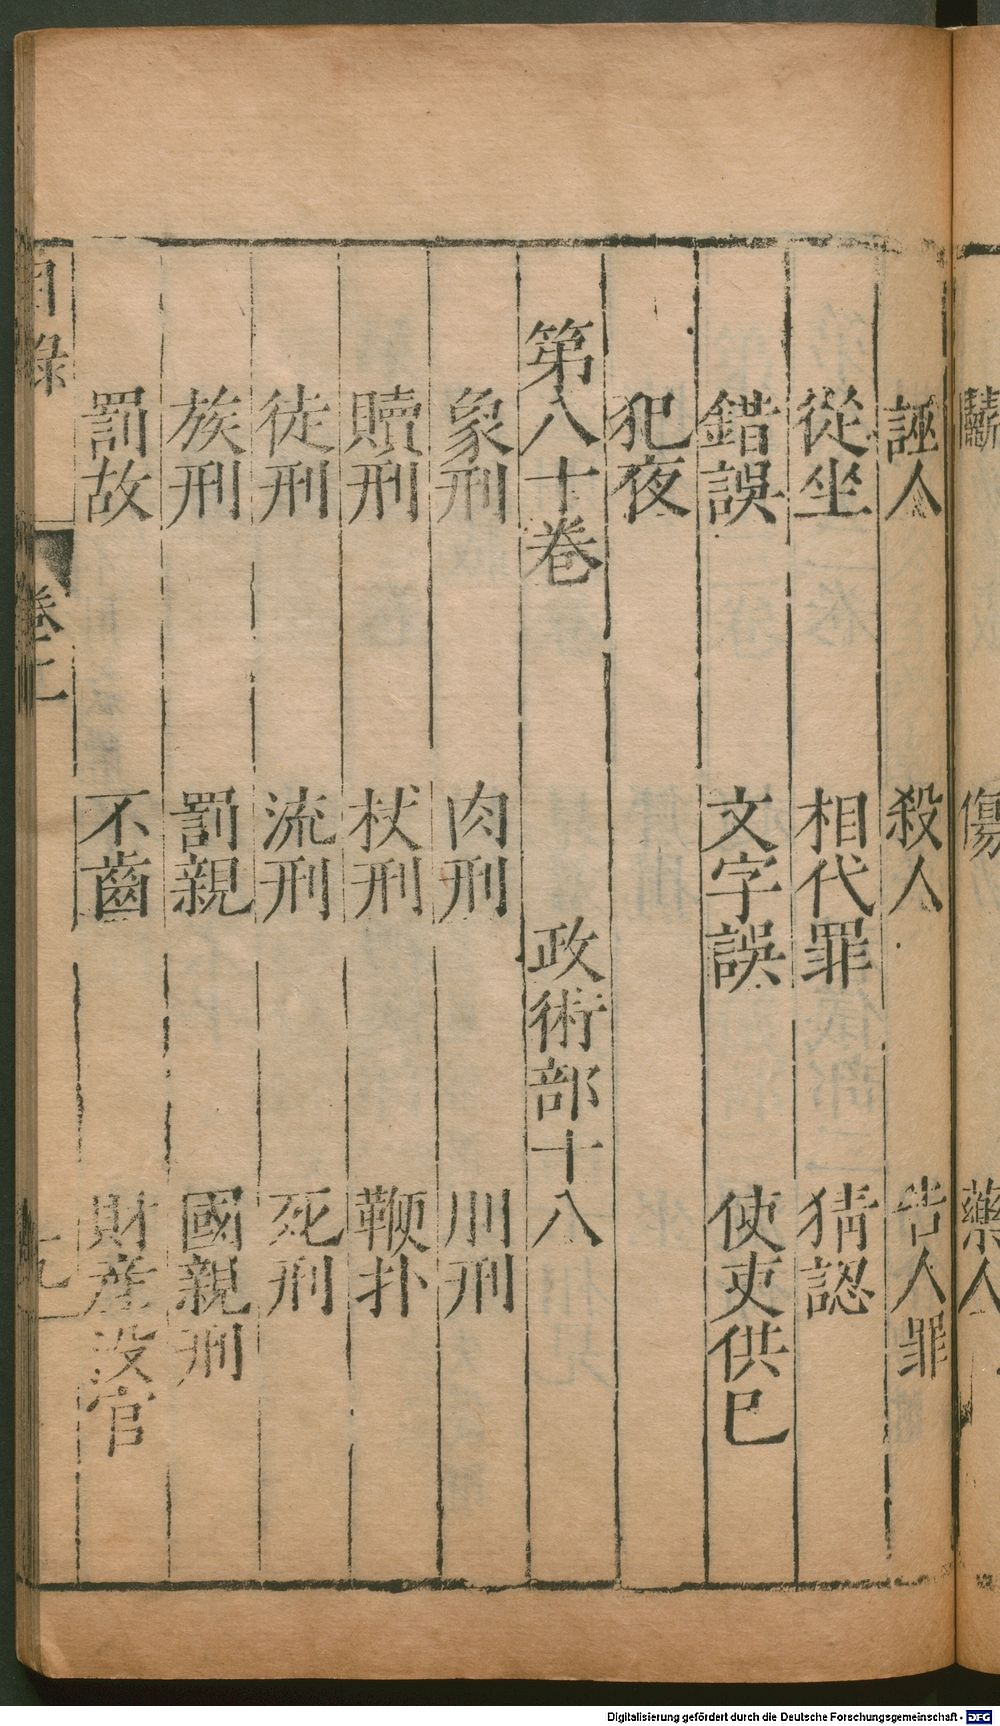 誣人 殺人 告人罪
從坐 相代罪 猜認
錯誤 文字誤 使吏供巳
犯夜
第八十卷 政術部十八
象刑 肉刑 刖刑
贖刑 杖刑 鞭扑
徒刑 流刑 死刑
族刑 罰親 國親刑
罰故 不齒 財產没官
目錄 卷二
傷 藥人
Digitalisierung gefördert durch die Deutsche Forschungsgemeinschaft - DFG